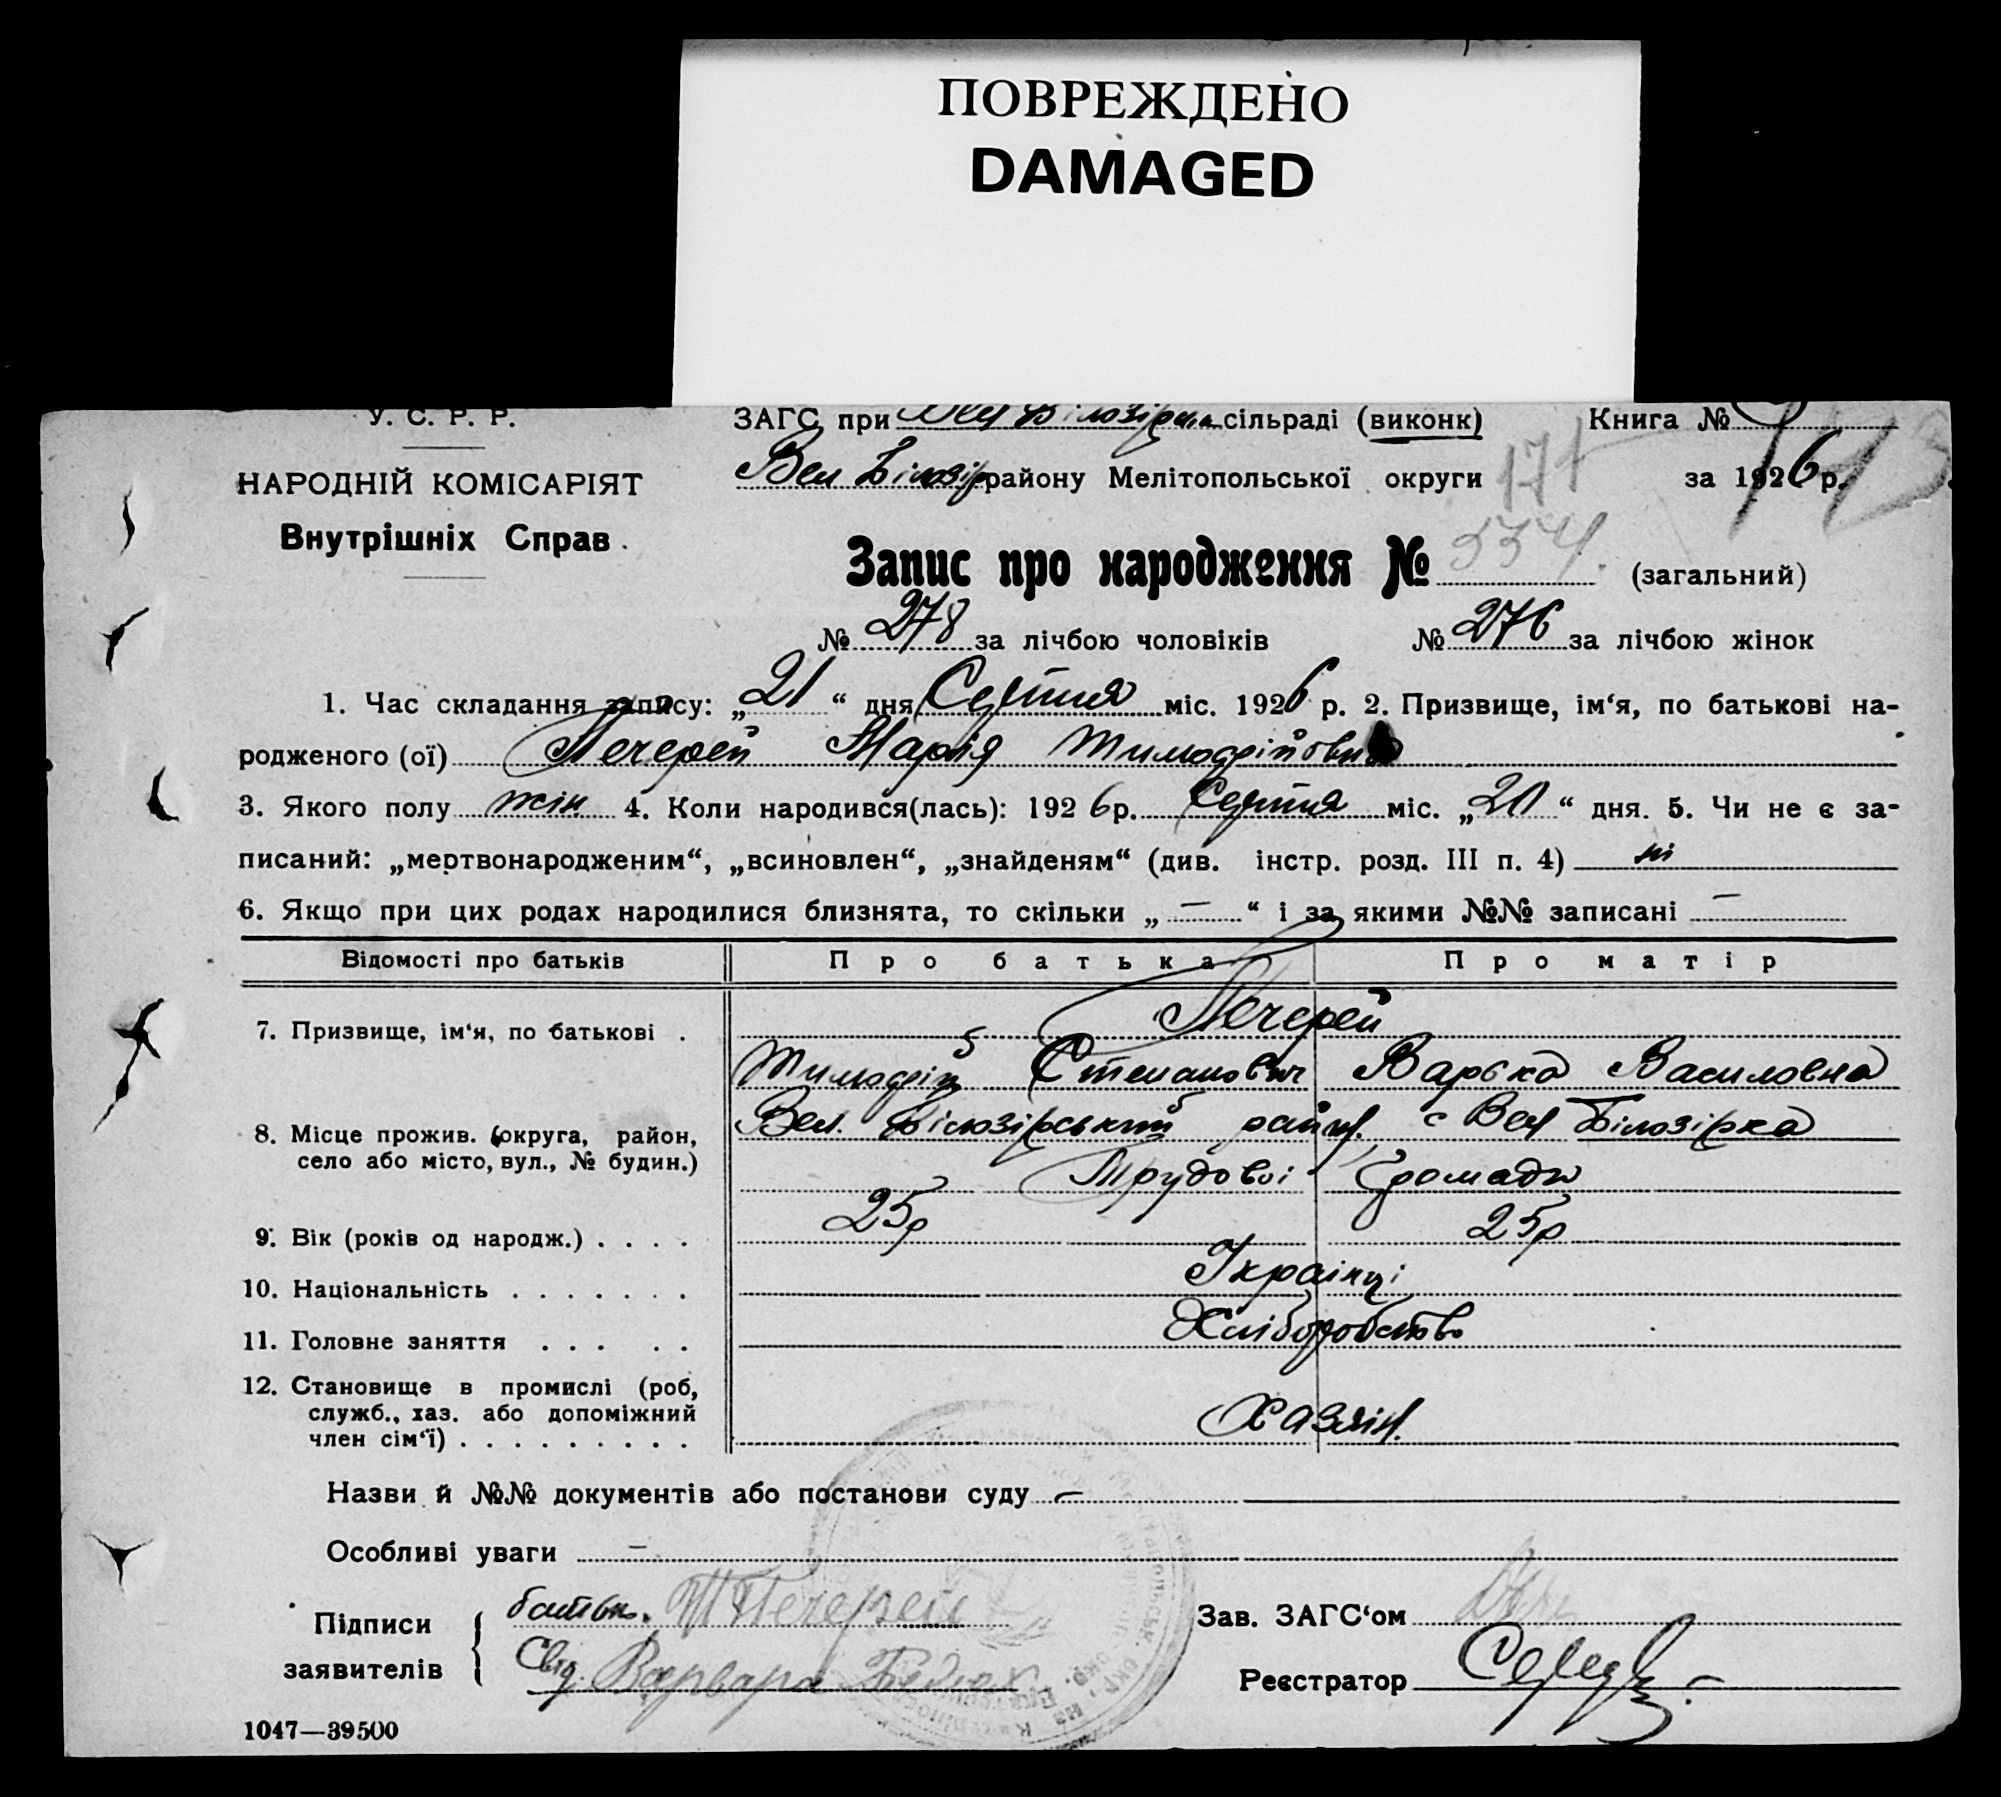 ПОВРЕЖДЕНО
DAMAGED
У. С. Р. Р.
НАРОДНІЙ КОМІСАРІЯТ
Внутрішніх Справ.
ЗАГС при Вел Білозірськ сільраді (виконк)
Книга №
Вел Білозір району Мелітопольської округи
за 1926 р.
171
173
Запис про народження № 554. (загальний)
№ 278 за лічбою чоловіків № 276 за лічбою жінок
1. Час складання запису: „21“ дня Серпня міс. 1926 р. 2. Призвище, ім‘я, по батькові на-
родженого (ої) Печерей Марія Тимофійовна
3. Якого полу жін. 4. Коли народився(лась): 1926 р. Серпня міс. „20“ дня. 5. Чи не є за-
писаний: „мертвонародженим“, „всиновлен“, „знайденям“ (див. інстр. розд. III п. 4) ні
6. Якщо при цих родах народилися близнята, то скільки „ — “ і за якими №№ записані —
Відомості про батьків Про батька Про матір
7. Призвище, ім‘я, по батькові . Печерей
Тимофій Степанович Варька Василовна
8. Місце прожив. (округа, район, Вел. Білозірський район. с Вел Білозірка
село або місто, вул., № будин.) Трудовоі Громади
9. Вік (років од народж.) . . . . 25р 25р
10. Національність . . . . . . . Украінці
11. Головне заняття . . . . . Хліборобство
12. Становище в промислі (роб,
служб., хаз. або допоміжний
член сім‘ї) . . . . . . . . . Хазяін.
Назви й №№ документів або постанови суду —
Особливі уваги —
Підписи
заявителів
батько. Т Печерей
Свід. Варвара
Зав. ЗАГС‘ом
Реєстратор
1047—39500